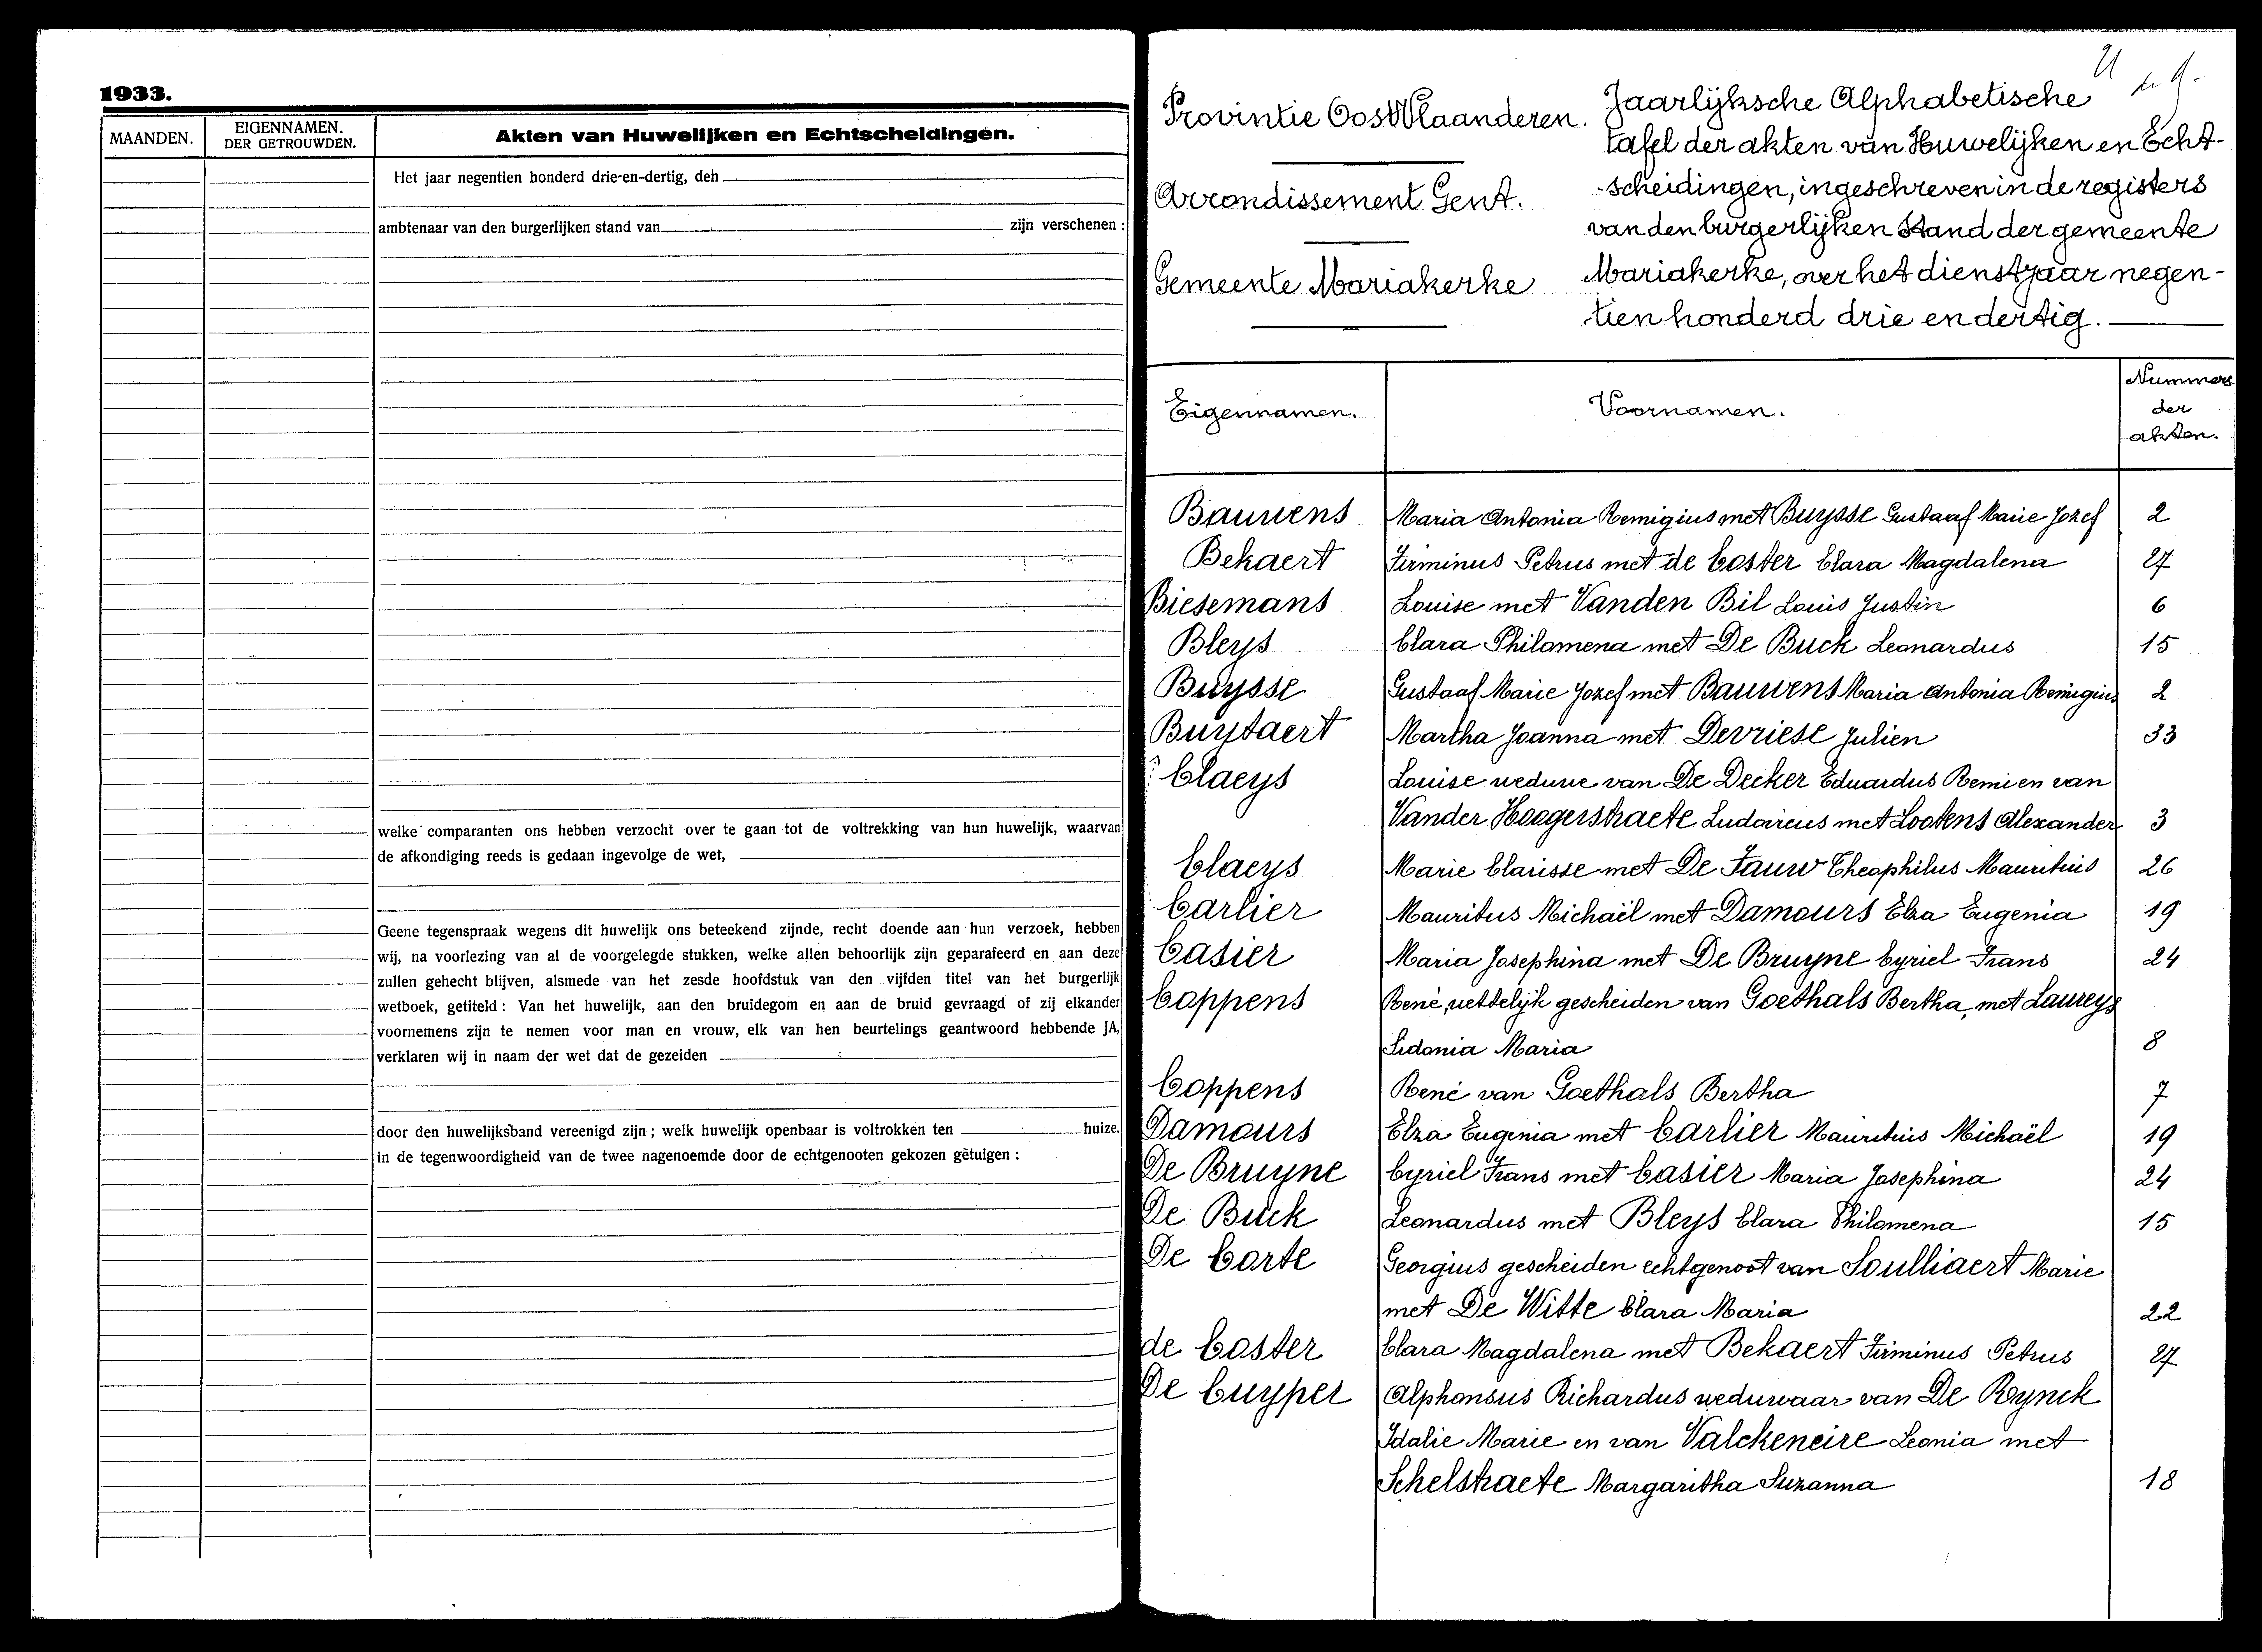 1933.
MAANDEN.
EIGENNAMEN.
DER GETROUWDEN.
Akten van Huwelijken en Echtscheidingen.
Het jaar negentien honderd drie-en-dertig, den
ambtenaar van den burgerlijken stand van zijn verschenen :
welke comparanten ons hebben verzocht over te gaan tot de voltrekking van hun huwelijk, waarvan
de afkondiging reeds is gedaan ingevolge de wet,
Geene tegenspraak wegens dit huwelijk ons beteekend zijnde, recht doende aan hun verzoek, hebben
wij, na voorlezing van al de voorgelegde stukken, welke allen behoorlijk zijn geparafeerd en aan deze
zullen gehecht blijven, alsmede van het zesde hoofdstuk van den vijfden titel van het burgerlijk
wetboek, getiteld : Van het huwelijk, aan den bruidegom en aan de bruid gevraagd of zij elkander
voornemens zijn te nemen voor man en vrouw, elk van hen beurtelings geantwoord hebbende JA,
verklaren wij in naam der wet dat de gezeiden
door den huwelijksband vereenigd zijn ; welk huwelijk openbaar is voltrokken ten huize,
in de tegenwoordigheid van de twee nagenoemde door de echtgenooten gekozen getuigen :
Provintie Oost Vlaanderen.
Arrondissement Gent.
Gemeente Mariakerke
Jaarlijksche Alphabetische
tafel der akten van Huwelijken en Echt-
-scheidingen, ingeschreven in de registers
van den burgerlijken stand der gemeente
Mariakerke, over het dienstjaar negen-
tien honderd drie en dertig.
Eigennamen.
Voornamen.
Nummers
der
akten.
Bauwens Maria Antonia Remigius met Buysse Gustaaf Marie Jozef 2
Bekaert Firminus Petrus met de Coster Clara Magdalena 27
Biesemans Louise met Vanden Bil Louis Justin 6
Bleys Clara Philomena met De Buck Leonardus 15
Buysse Gustaaf Marie Jozef met Bauwens Maria Antonia Remigius 2
Buystaert Martha Joanna met Devriese Julien 33
Claeys Louise weduwe van De Decker Eduardus Remi en van
Vander Haegerstraete Ludovicus met Lootens Alexander 3
Claeys Marie Clarisse met De Fauw Theophilus Mauritius 26
Carlier Mauritus Michaël met Damours Elza Eugenia 19
Casier Maria Josephina met De Bruyne Cyriel Frans 24
Coppens René, wettelijk gescheiden van Goethals Bertha, met Laureys
Sidonia Maria 8
Coppens René van Goethals Bertha 7
Damours Elza Eugenia met Carlier Mauritius Michaël 19
De Bruyne Cyriel Frans met Casier Maria Josephina 24
De Buck Leonardus met Bleys Clara Philomena 15
De Corte Georgius gescheiden echtgenoot van Soulliaert Marie
met De Witte Clara Maria 22
de Coster Clara Magdalena met Bekaert Firminus Petrus 27
De Cuyper Alphonsus Richardus weduwaar van De Reynck
Idalie Marie en van Valckeneire Leonia met
Schelstraete Margaritha Suzanna 18